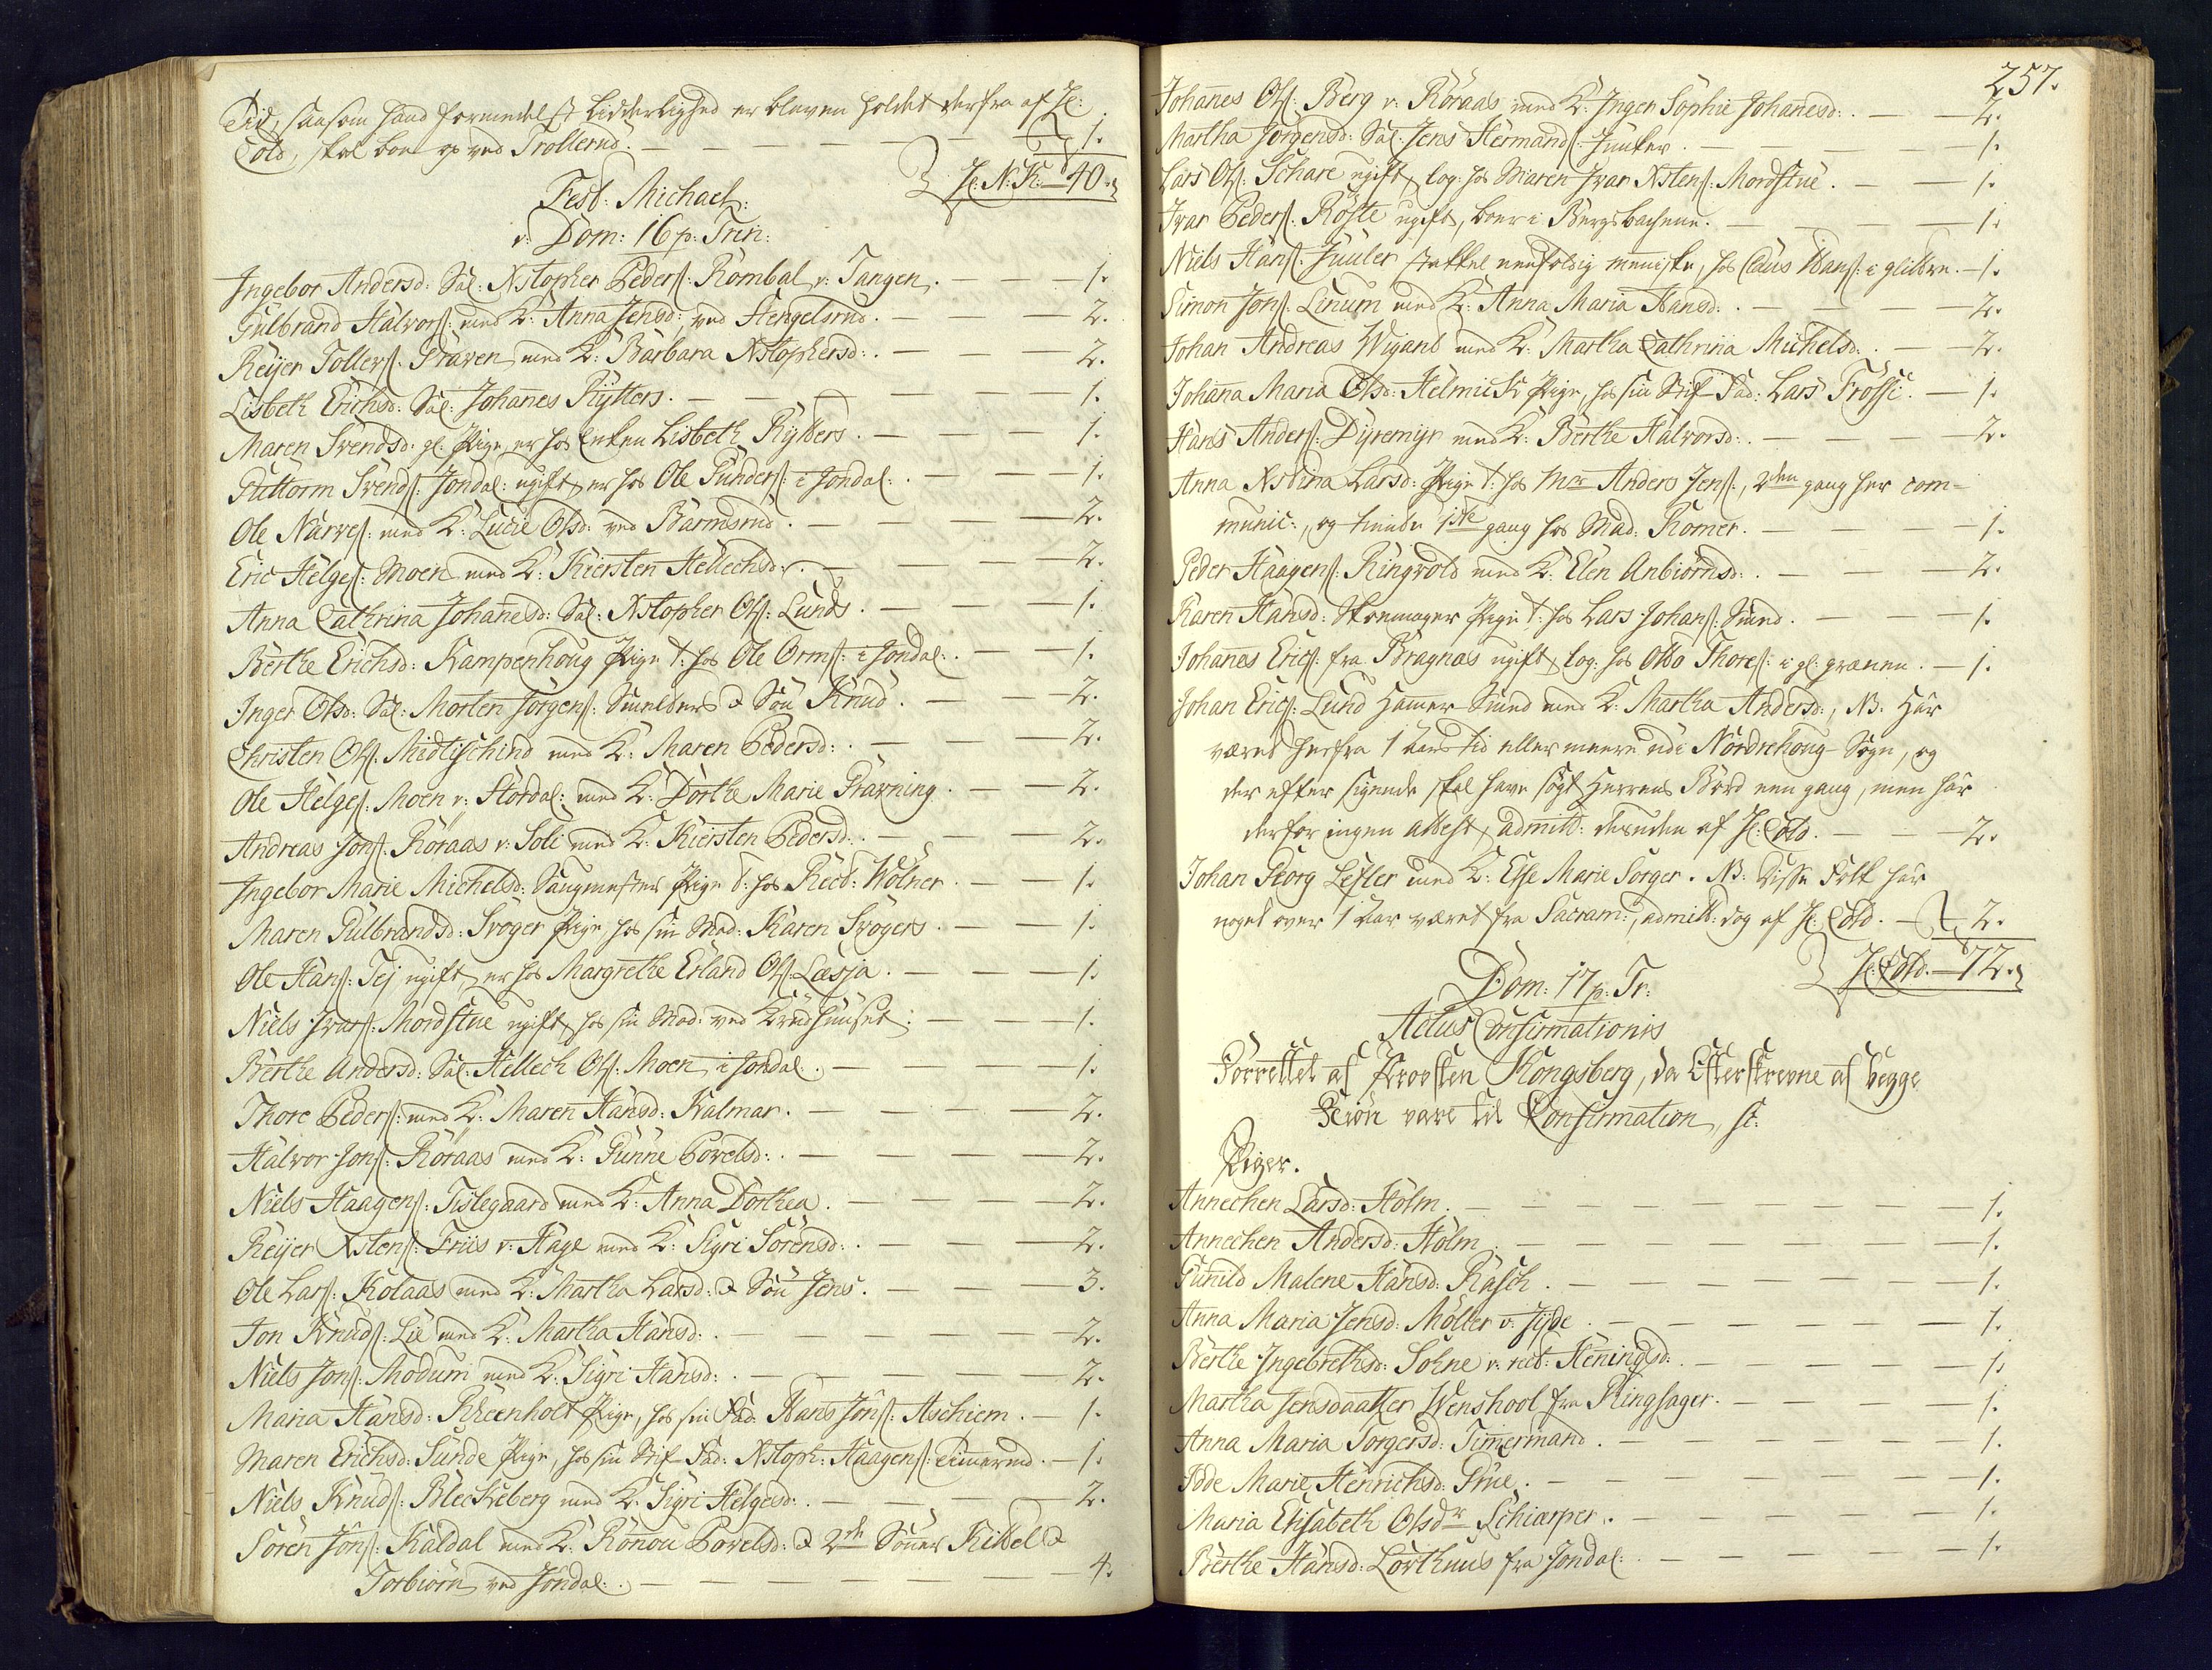 Tid, saasom hand formedelst Lidderlighed er bleven holdet derfra af H:
Cold, skal boe op ved Trollerud. — 1.
H: N: K: — 40.
Fest: Michael:
v: Dom: 16 p: Trin:
Ingebor Andersd: Sal: Xstopher Peders: Rombal v: Tangen. — 1.
Gulbrand Halvors: med K: Anna Jensd: ved Hengelsrud. — 2.
Reijer Tollefs: Graven med K: Barbara Xstophersd: — 2.
Lisbeth Erichsd: Sal: Johañes Rytters. — 1.
Maren Svendsd: gl: Pige, er hos Enken Lisbeth Rytters. — 1.
Guttorm Svends: Jondal: ugift, er hos Ole Gunders: i Jondal: — 1.
Ole Narves: med K: Lucie Olsd: ved Barmsrud. — 2.
Eric Helges: Moen med K: Kiersten Hellechsd: — 2.
Anna Cathrina Johañesd: Sal: Xstopher Ols: Lunds. — 1.
Berthe Erichsd: Kampenhoug Pige t: hos Ole Orms: i Jondal: — 1.
Inger Olsd: Sal: Morten Jörgens: Smelters & Sön Knud. — 2.
Christen Ols: Midtischind med K: Maren Pedersd: — 2.
Ole Helges: Moen v: Stordal: med K: Dorthe Marie Gravning. — 2.
Andreas Jons: Röraas v: Soli med K: Kiersten Pedersd: — 2.
Ingebor Marie Michelsd: Saugmester Pige t: hos Rect: Wölner. — 1.
Maren Gulbrandsd: Svöger Pige hos sin Mod: Karen Svögers. — 1.
Ole Hans: Tej ugift, er hos Margrethe Erland Ols: Læsja. — 1.
Niels Ivars: Mordstue ugift, hos sin Mod: ved Krudhuuset: — 1.
Berthe Andersd: Sal: Hellech Ols: Moen i Jondal: — 1.
Thore Peders: med K: Maren Hansd: Kalmar. — 2.
Halvor Jons: Röraas med K: Gunne Povelsd: — 2.
Niels Haagens: Tislegaard med K: Anna Dorthea. — 2.
Reijer Xstens: Friis v: Hage med K: Sigri Sörensd: — 2.
Ole Lars: Kolaas med K: Martha Larsd: & Sön Jens. — 3.
Jon Knuds: Lie med K: Martha Hansd: — 2.
Niels Jons: Modum med K: Sigri Hansd: — 2.
Maria Hansd: Pige, hos sin Fad: Hans Jons: Aschiem. — 1.
Maren Erichsd: Sunde Pige, hos sin Stif-Fad: Xstoph: Haagens: — 1.
Niels Knuds: Bleckeberg med K: Sigri Helgesd: — 2.
Sören Jons: Kaldal med K: Ronou Povelsd: & 2de Sönner Kittel &
Torbiörn ved Jondal: — 4.
257.
Johañes Ols: Berg v: Röraas med K: Inger Sophie Johañesd: — 2.
Martha Jörgensd: Sal: Jens Hermands: Junker. — 1.
Lars Ols: Schare ugift, log: hos Maren Ivar Xstens: Mordstue. — 1.
Ivar Peders: Röste ugift, boer i Bergsbachene. — 1.
Niels Hans: Juuler stakkel eenfoldig menniske, hos Claus Hans: i glittre. — 1.
Simon Jons: Linum med K: Anna Maria Hansd: — 2.
Johan Andreas Wigand med K: Martha Cathrina Michelsd: — 2.
Johaña Maria Olsd: Helmick Pige, hos sin Stif-Fad: Lars Frossi: — 1.
Hans Anders: Dyremyr med K: Berthe Halvorsd: — 2.
Anna Xstina Larsd: Pige t: hos Mr Anders Jens:, 2den gang her com-
munic:, og hendes 1ste gang hos Mad: Romer. — 1.
Peder Haagens: Ringvold med K: Elen Anbiörnsd: — 2.
Karen Hansd: Skoemager Pige t: hos Lars Johans: Smed. — 1.
Johañes Erics: fra Bragnæs ugift, log: hos Otto Thores: i gl: grænen. — 1.
Johan Erics: Lund Hamer Smed med K: Martha Andersd:, NB. Har
været herfra 1 Aars tid eller meere udi Nordrehoug Sogn, og
der efter sigende skal have sögt Herrens Bord een gang, men har
derfor ingen attest, admitt: desuden af H: Cold. — 2.
Johan Georg Lesler med K: Else Marie Sorger. NB: disse Folk har
noget over 1 Aar været fra Sacram:, admitt: dog af H: Cold. — 2.
H: Cold. — 72.
Dom: 17 p: Tr:
Actus Confirmationis
Forrettet af Provsten Kongsberg, da Efterskrevne af begge
Kiön vare til Confirmation, sc:
Piger.
Annechen Larsd: Holm. — 1.
Annechen Andersd: Holm — 1.
Gunild Malene Hansd: Rasch. — 1.
Anna Maria Jensd: Möller v: Jyde. — 1.
Berthe Ingebrethsd: Solne v: rect: Heningsd: — 1.
Martha Jensdaatter Wenshool fra Ringsager. — 1.
Anna Maria Torgersd: Timermand. — 1.
Idde Marie Henrichsd: Grue. — 1.
Maria Elisabeth Olsdr Schiærper. — 1.
Berthe Hansd: Lorthuus fra Jondal: — 1.